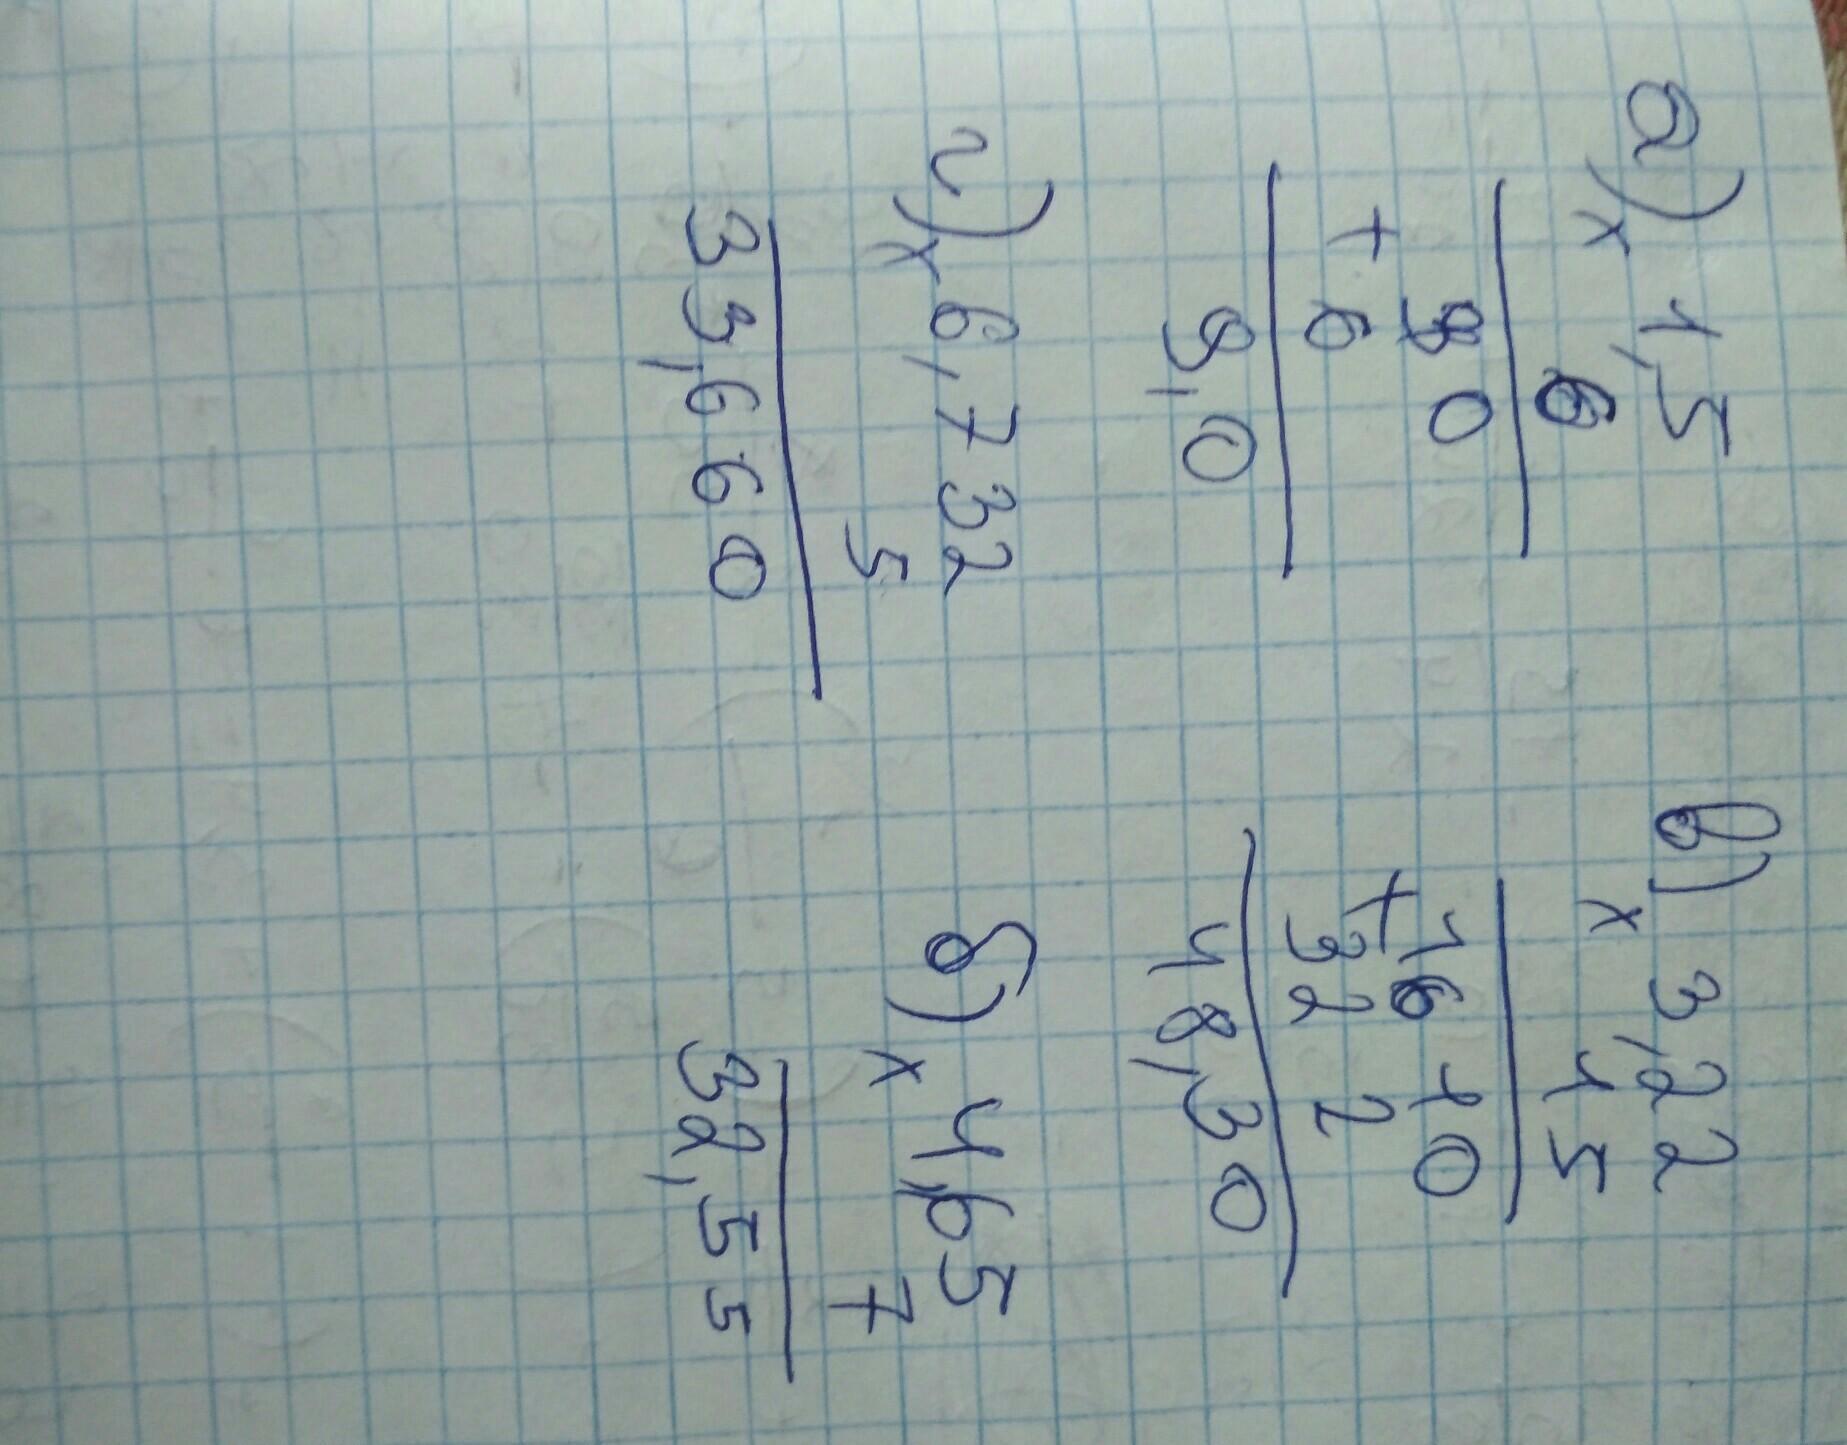 а) × 1,5
6
90
+ 6
9,0
в) × 3,22
15
1610
+ 322
48,30
г) × 6,732
5
33,660
б) × 4,65
7
32,55